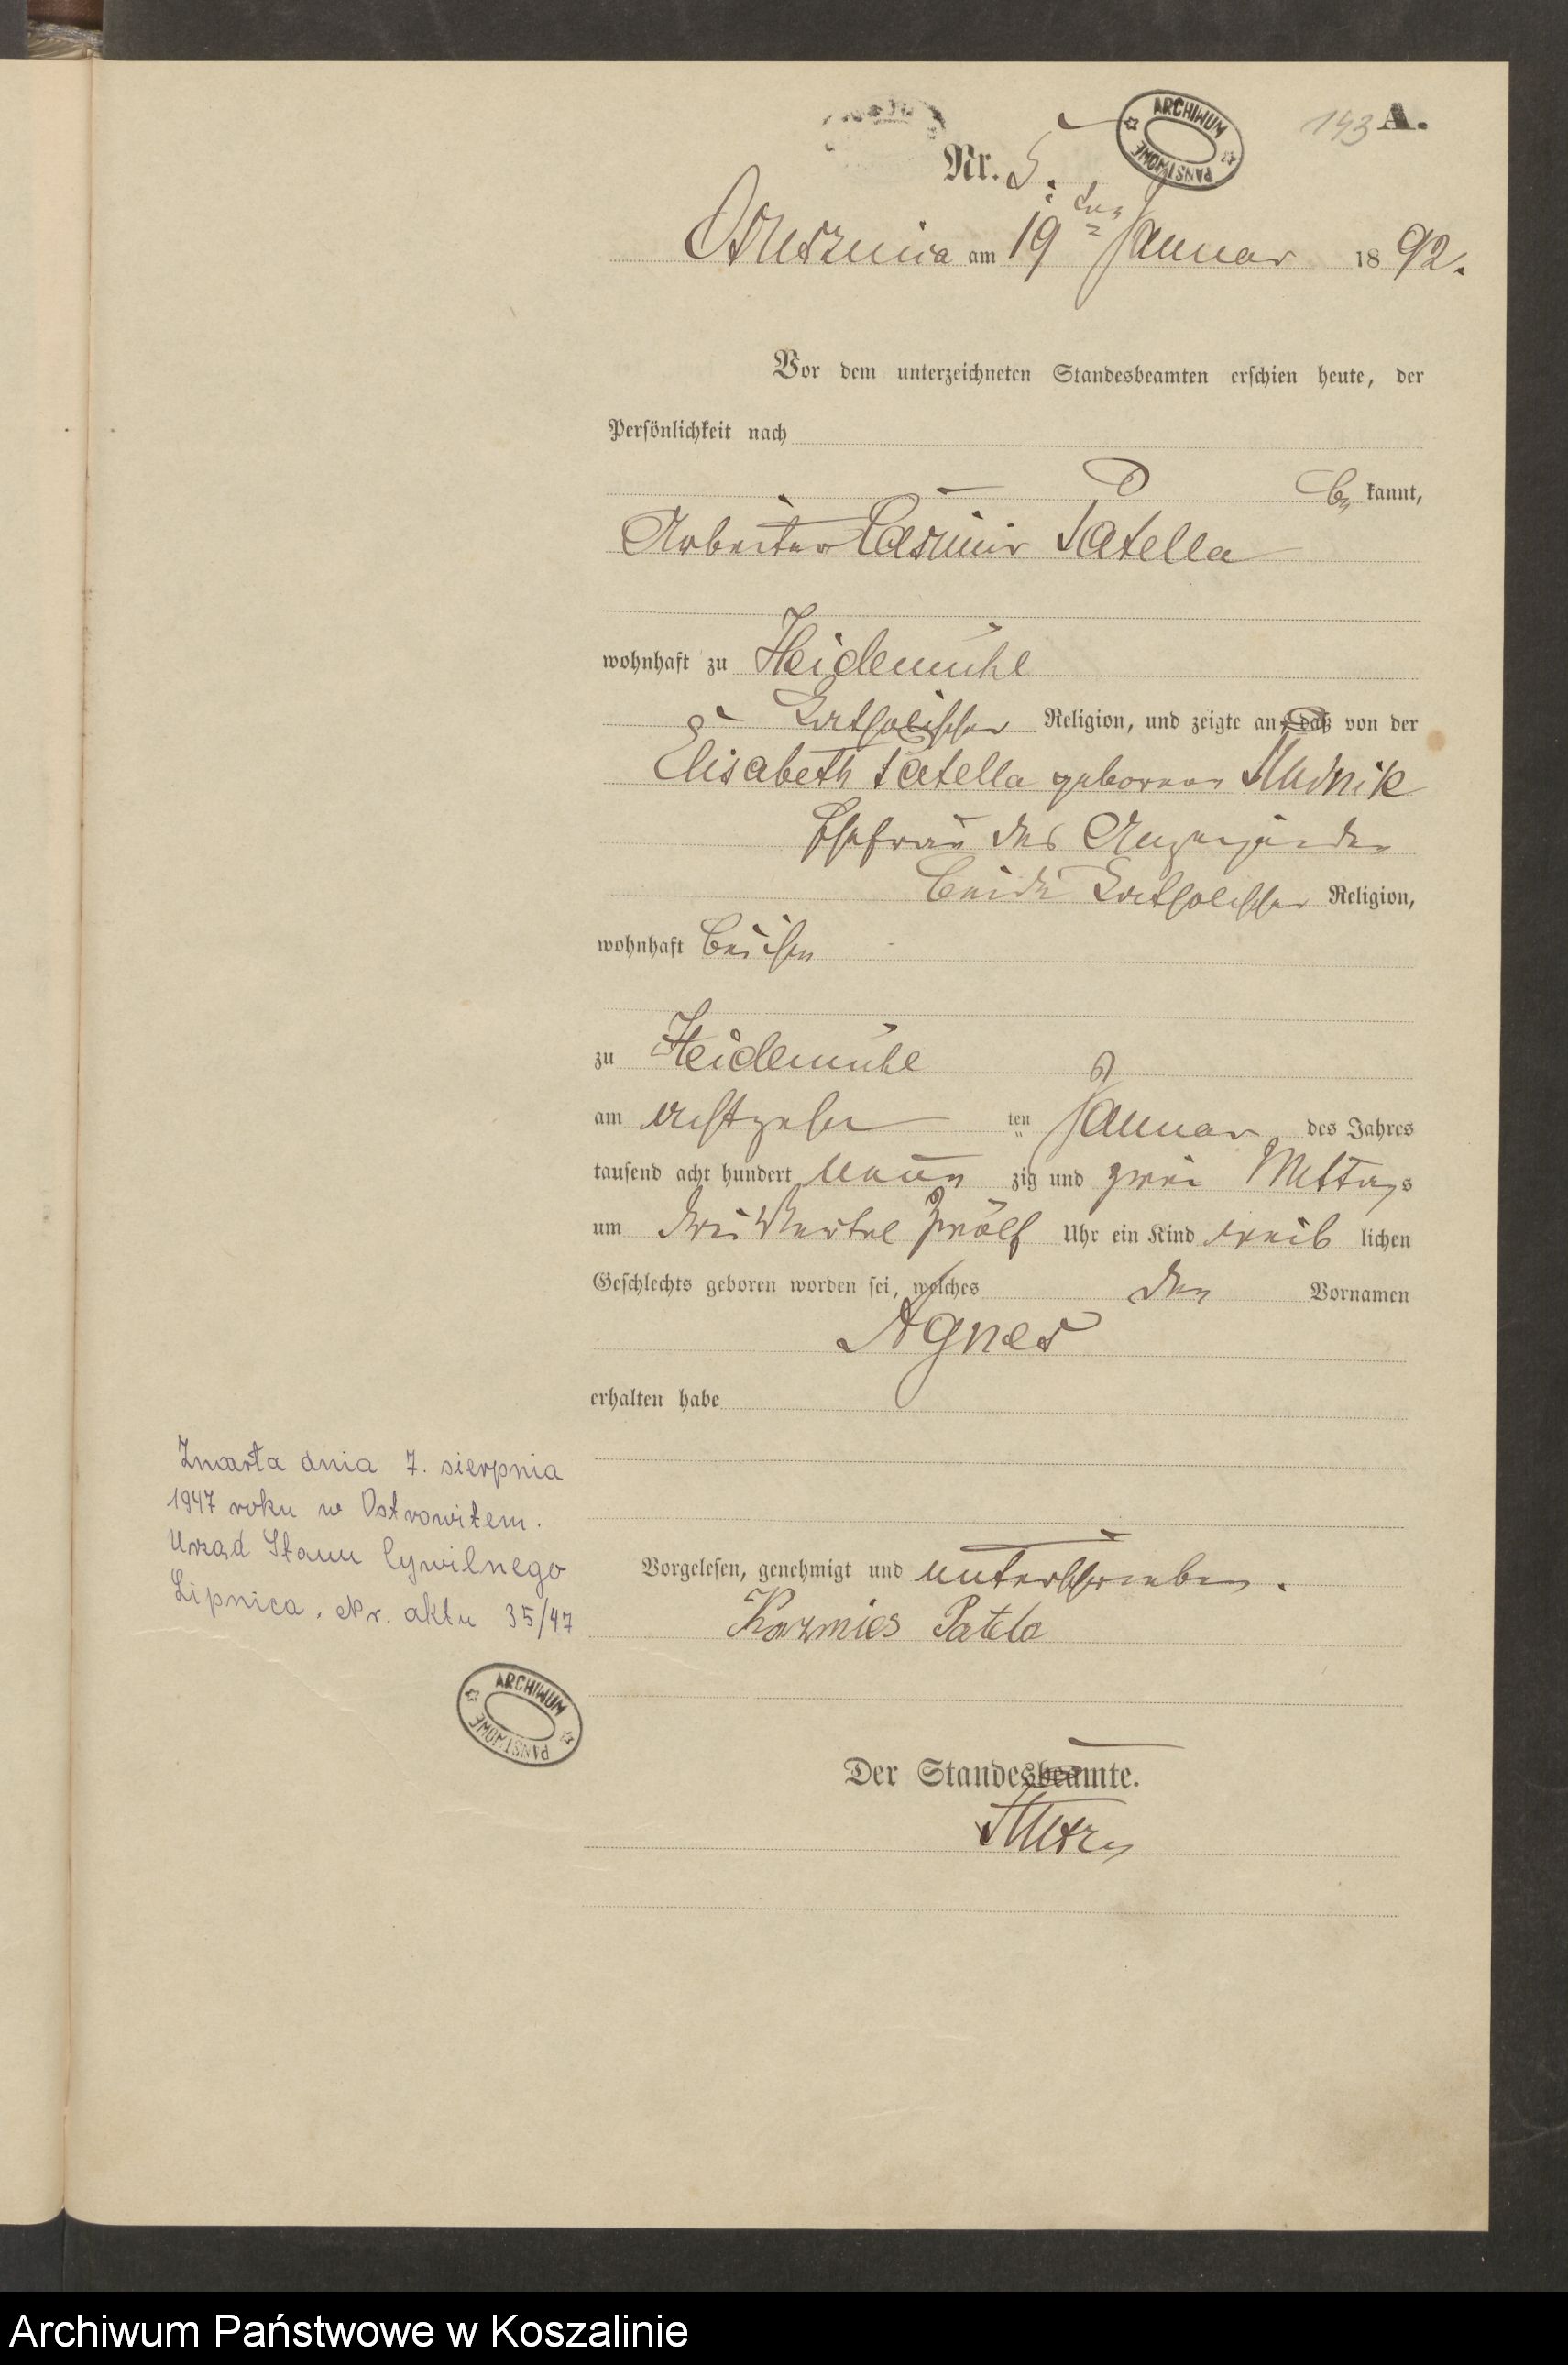 143 A.
ARCHIWUM PAŃSTWOWE
Nr. 5.
Osusznica am 19ten Januar 1892.
Vor dem unterzeichneten Standesbeamten erschien heute, der
Persönlichkeit nach
be kannt,
Arbeiter Casimir Patella
wohnhaft zu Heidemühl
katholischer Religion, und zeigte an, daß von der
Elisabeth Patella geborenen
Ehefrau des Anzeigenden
beide katholischer Religion,
wohnhaft bei ihm
zu Heidemühl
am achtzehn ten Januar des Jahres
tausend acht hundert neun zig und zwei Mittags
um drei Viertel zwölf Uhr ein Kind weib lichen
Geschlechts geboren worden sei, welches den Vornamen
Agnes
erhalten habe
Zmarła dnia 7. sierpnia
1947 roku w Ostrowitem.
Urząd Stanu Cywilnego
Lipnica. Nr. aktu 35/47
Vorgelesen, genehmigt und unterschrieben.
Patela
ARCHIWUM PAŃSTWOWE
Der Standesbeamte.
Archiwum Państwowe w Koszalinie